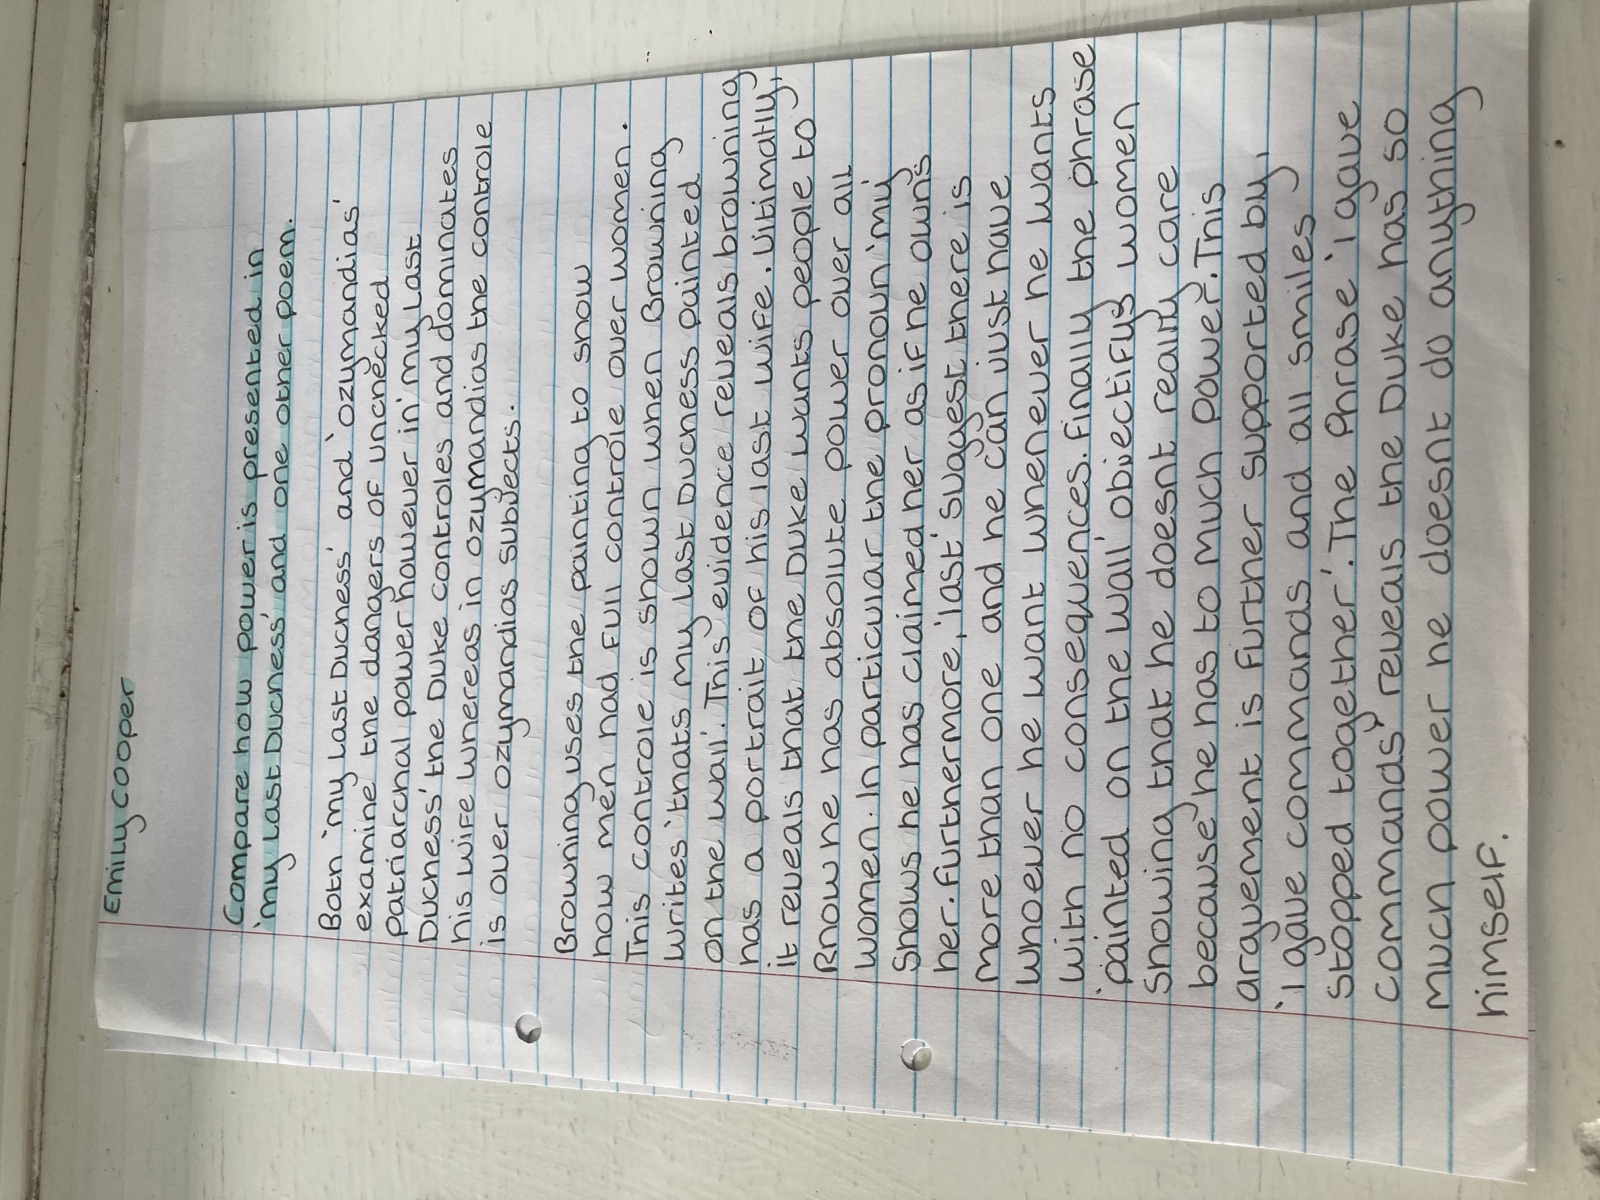 Emily Cooper
Compare how power is presented in
'my Last Duchess' and one other poem.
Both 'my Last Duchess' and 'ozymandias'
examine the dangers of unchecked
patriarchal power however in 'my Last
Duchess' the Duke controles and dominates
his wife whereas in ozymandias the controle
is over ozymandias subjects.
Browning uses the painting to show
how men had full controle over women.
This controle is shown when Browning
writes 'thats my Last Duchess painted
on the wall'. This evidence reveals browning
has a portrait of his last wife. Ultimatly,
it reveals that the Duke wants people to
know he has absolute power over all
women. In particular the pronoun 'my'
shows he has claimed her as if he owns
her. furthermore, 'last' suggest there is
more than one and he can just have
whoever he want whenever he wants
with no consequences. finally the phrase
'painted on the wall' objectifys women
showing that he doesnt really care
because he has to much power. This
arguement is further supported by,
'I gave commands and all smiles
stopped together'. The Phrase 'I gave
commands' reveals the Duke has so
much power he doesnt do anything
himself.